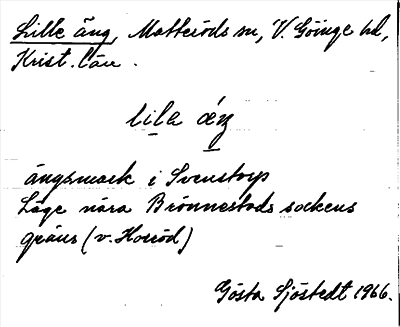 Lille äng, Matteröds sn, V. Göinge hd,
Krist. län.
lila äŋ
ängsmark i Svenstorp
Läge nära Brönnestads sockens
gräns (v. Horröd)
Gösta Sjöstedt 1966.